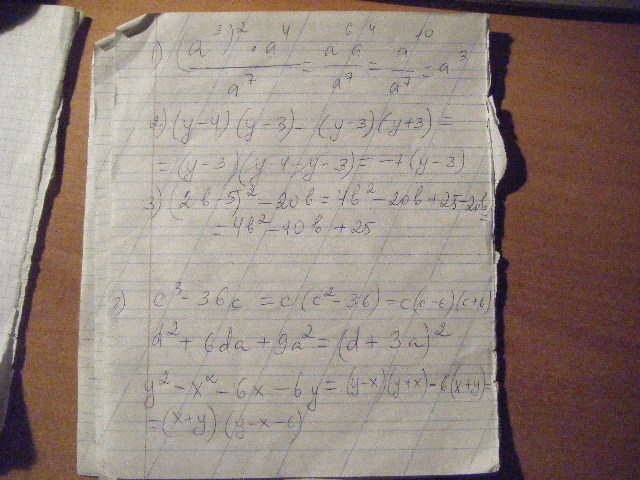 1) (a³)² · a⁴ / a⁷ = a⁶ a⁴ / a⁷ = a¹⁰ / a⁷ = a³
2) (y-4)(y-3) - (y-3)(y+3) =
= (y-3)(y-4-y-3) = -7(y-3)
3) (2b-5)² - 20b = 4b² - 20b + 25 - 20b =
= 4b² - 40b + 25
c³ - 36c = c(c² - 36) = c(c-6)(c+6)
d² + 6da + 9a² = (d + 3a)²
y² - x² - 6x - 6y = (y-x)(y+x) - 6(x+y) =
= (x+y)(y-x-6)